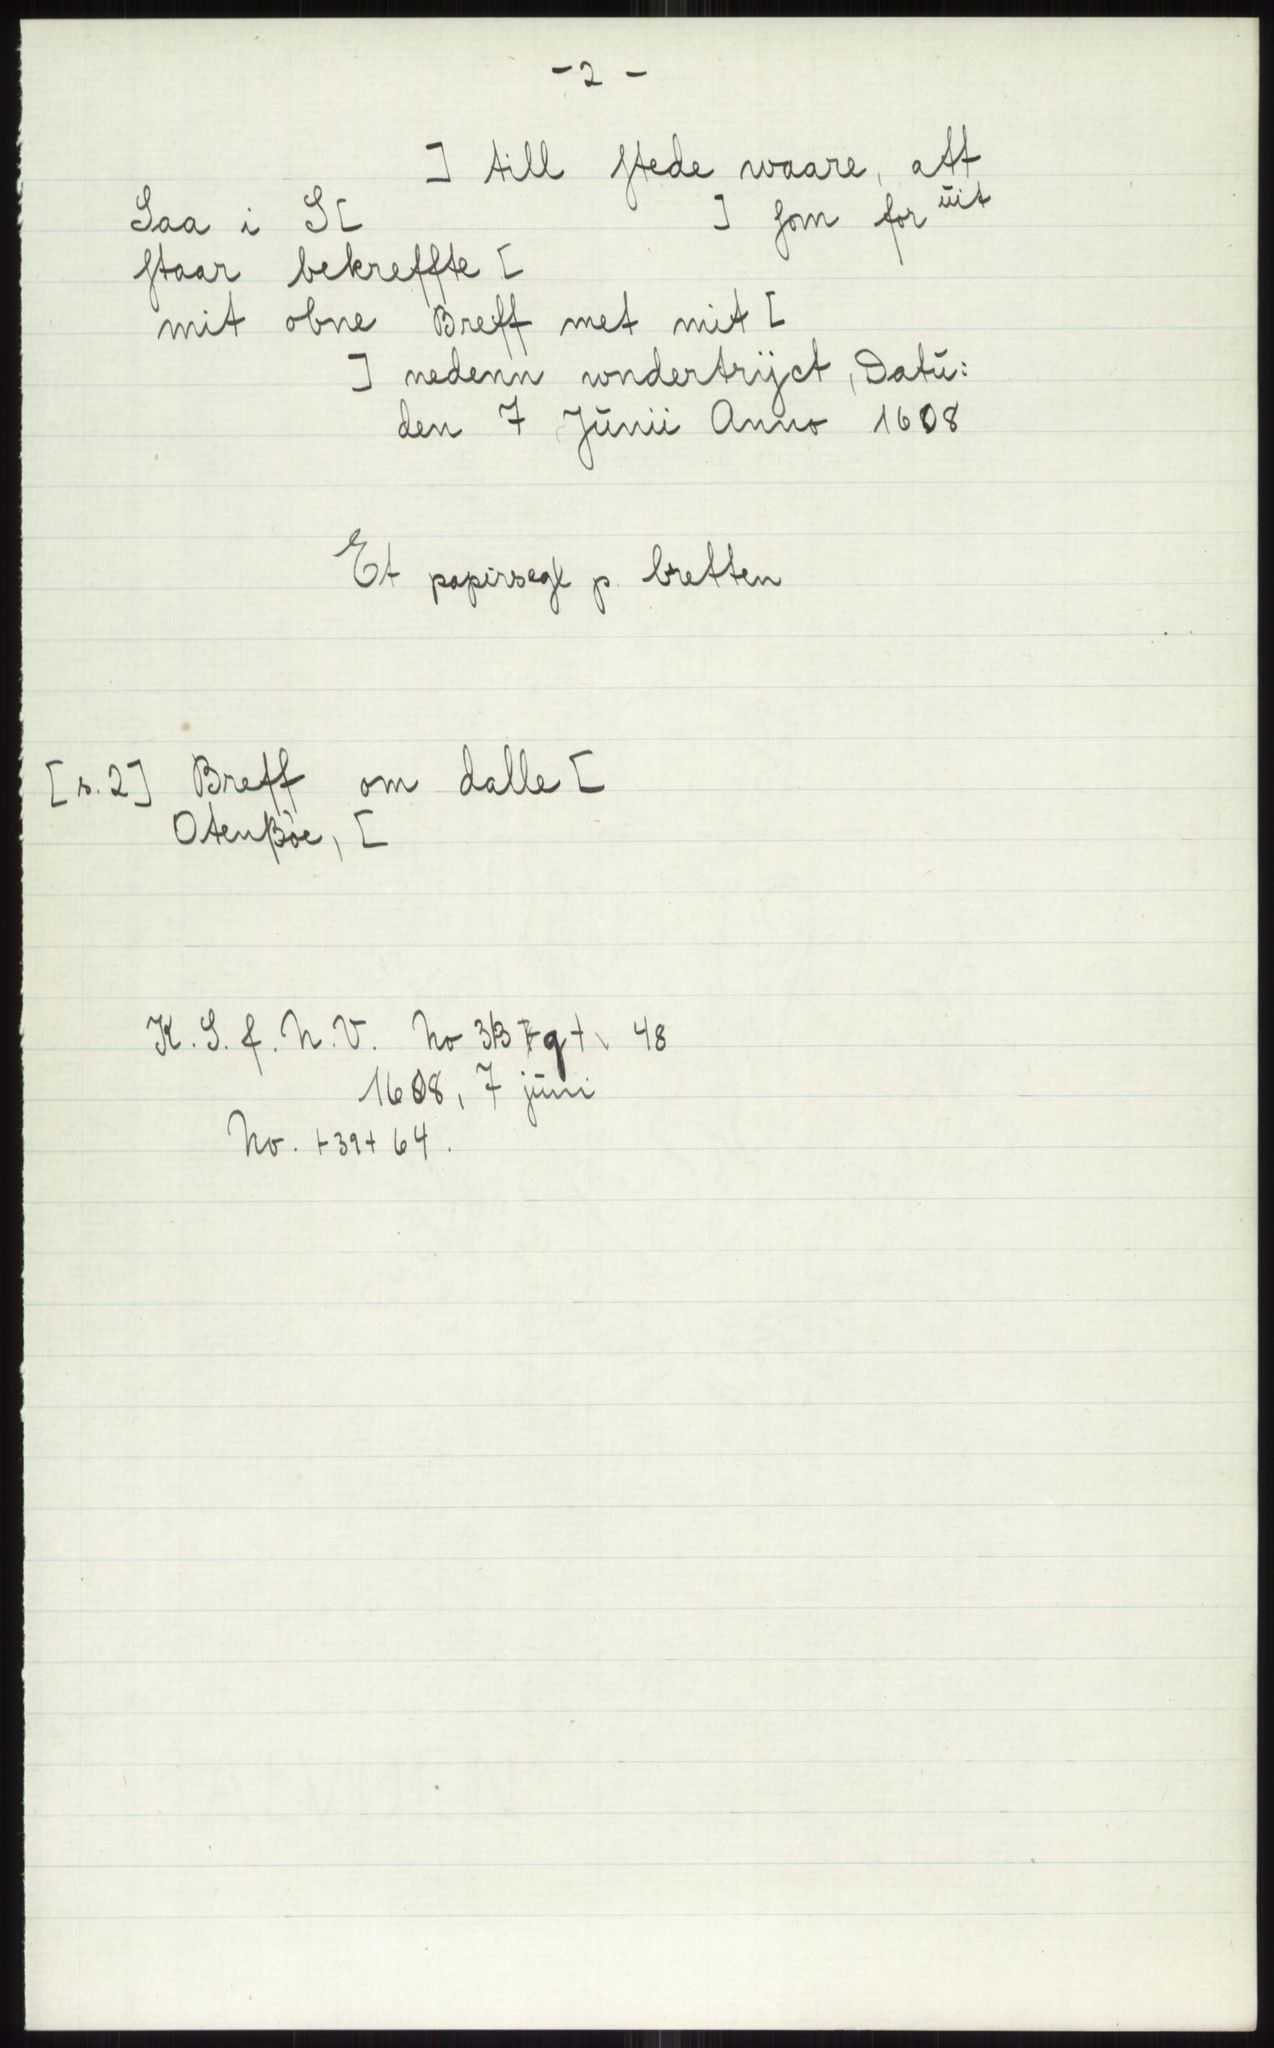 - 2 -
] till stede waare, att
Saa i S[ ] som for uit
staar bekreffte [
mit obne Breff met mit [
] nedenn wndertrijct, Datū:
den 7 Jūnii Anno 1608
Et papirsegl p. bretten
[s. 2] Breff om dalle [
Otenßöe, [
K. S. f. N. V. No 48
1608, 7 jūni
No. +39+ 64.